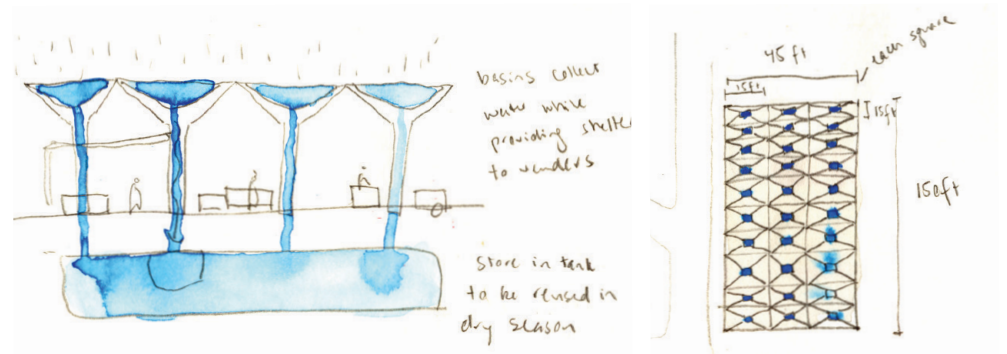 basins collect
water while
providing shelte
to venders
store in tank
to be reused in
dry season
45 ft
each square
15ft
15ft
150ft